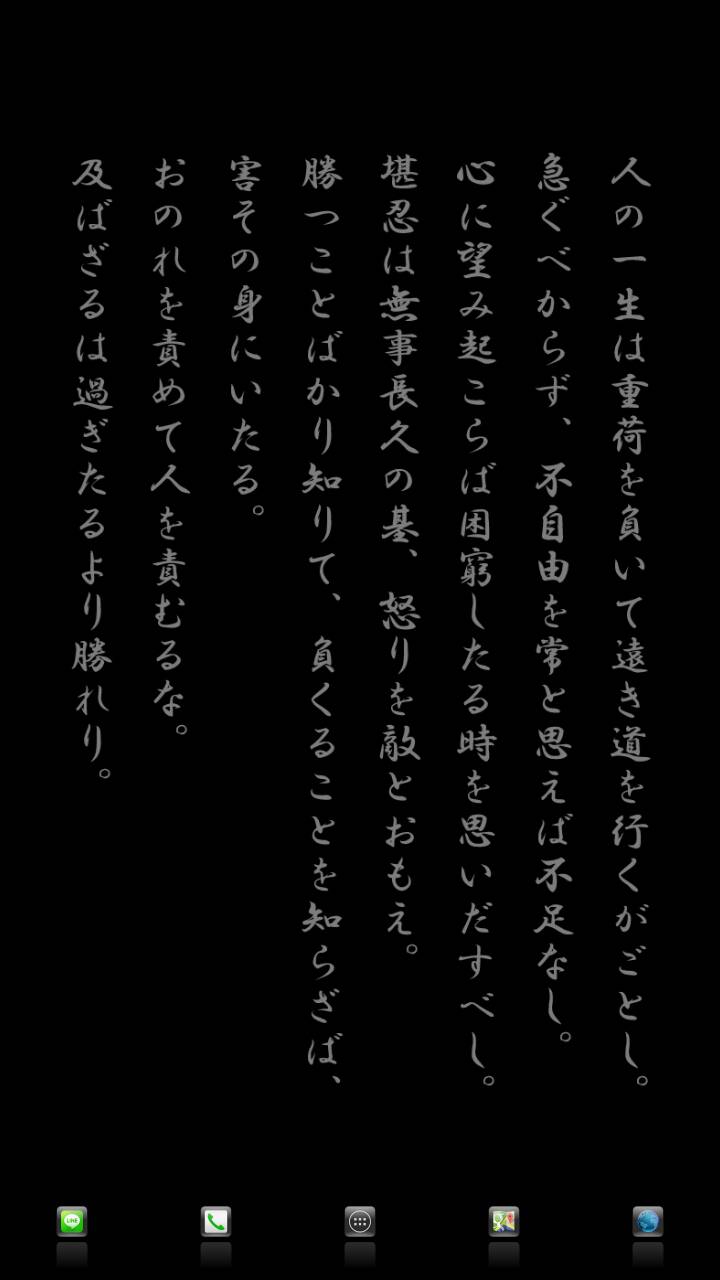 人の一生は重荷を負いて遠き道を行くがごとし。
急ぐべからず、不自由を常と思えば不足なし。
心に望み起こらば困窮したる時を思いだすべし。
堪忍は無事長久の基、怒りを敵とおもえ。
勝つことばかり知りて、負くることを知らざば、
害その身にいたる。
おのれを責めて人を責むるな。
及ばざるは過ぎたるより勝れり。
LINE